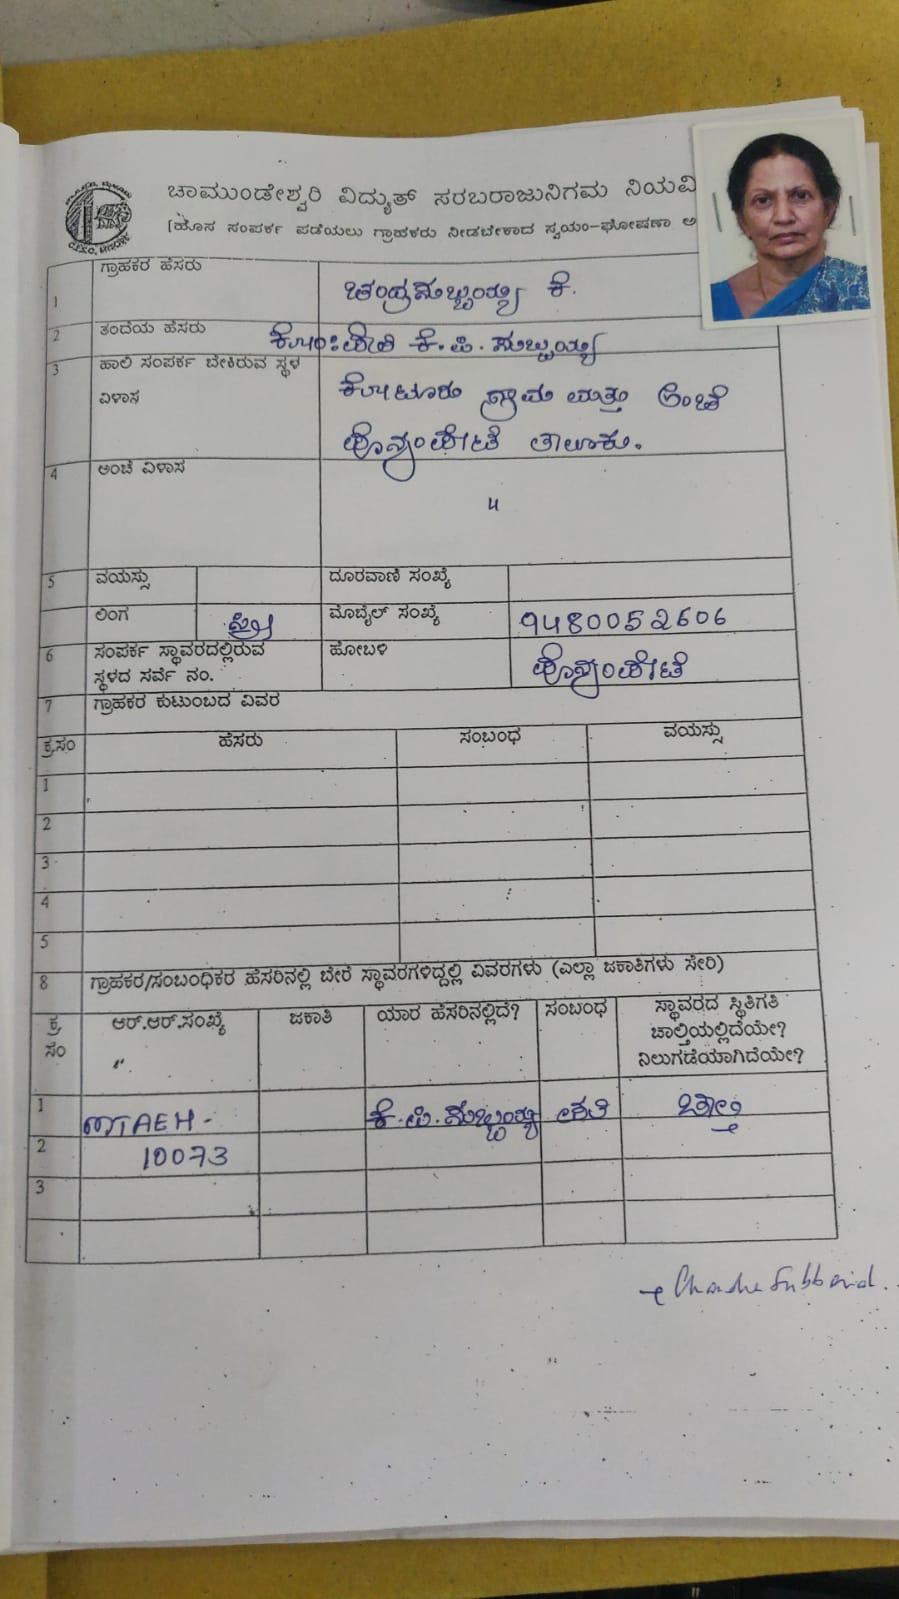 ಚಾಮುಂಡೇಶ್ವರಿ ವಿದ್ಯುತ್ ಸರಬರಾಜುನಿಗಮ ನಿಯಮಿ
(ಹೊಸ ಸಂಪರ್ಕ ಪಡೆಯಲು ಗ್ರಾಹಕರು ನೀಡಬೇಕಾದ ಸ್ವಯಂ-ಘೋಷಣಾ ಅ
1 ಗ್ರಾಹಕರ ಹೆಸರು ಚಂದ್ರಸುಬ್ಬಯ್ಯ ಕೆ.
2 ತಂದೆಯ ಹೆಸರು ಕೆ.ಪಿ. ಸುಬ್ಬಯ್ಯ
3 ಹಾಲಿ ಸಂಪರ್ಕ ಬೇಕಿರುವ ಸ್ಥಳ
ವಿಳಾಸ ಗ್ರಾಮ ಮತ್ತು ಅಂಚೆ
ಪೊನ್ನಂಪೇಟೆ ತಾಲೂಕು.
4 ಅಂಚೆ ವಿಳಾಸ 〃
5 ವಯಸ್ಸು ದೂರವಾಣಿ ಸಂಖ್ಯೆ
ಲಿಂಗ ಸ್ತ್ರೀ ಮೊಬೈಲ್ ಸಂಖ್ಯೆ 9480052606
6 ಸಂಪರ್ಕ ಸ್ಥಾವರದಲ್ಲಿರುವ ಹೋಬಳಿ ಪೊನ್ನಂಪೇಟೆ
ಸ್ಥಳದ ಸರ್ವೆ ನಂ.
7 ಗ್ರಾಹಕರ ಕುಟುಂಬದ ವಿವರ
ಕ್ರ.ಸಂ ಹೆಸರು ಸಂಬಂಧ ವಯಸ್ಸು
1
2
3
4
5
8 ಗ್ರಾಹಕರ/ಸಂಬಂಧಿಕರ ಹೆಸರಿನಲ್ಲಿ ಬೇರೆ ಸ್ಥಾವರಗಳಿದ್ದಲ್ಲಿ ವಿವರಗಳು (ಎಲ್ಲಾ ಜಕಾತಿಗಳು ಸೇರಿ)
ಕ್ರ ಸಂ ಆರ್.ಆರ್.ಸಂಖ್ಯೆ ಜಕಾತಿ ಯಾರ ಹೆಸರಿನಲ್ಲಿದೆ? ಸಂಬಂಧ ಸ್ಥಾವರದ ಸ್ಥಿತಿಗತಿ
ಚಾಲ್ತಿಯಲ್ಲಿದೆಯೇ?
ನಿಲುಗಡೆಯಾಗಿದೆಯೇ?
1 AEH- ಕೆ.ಪಿ.ಸುಬ್ಬಯ್ಯ ಪತಿ ಚಾಲ್ತಿ
2 10073
3